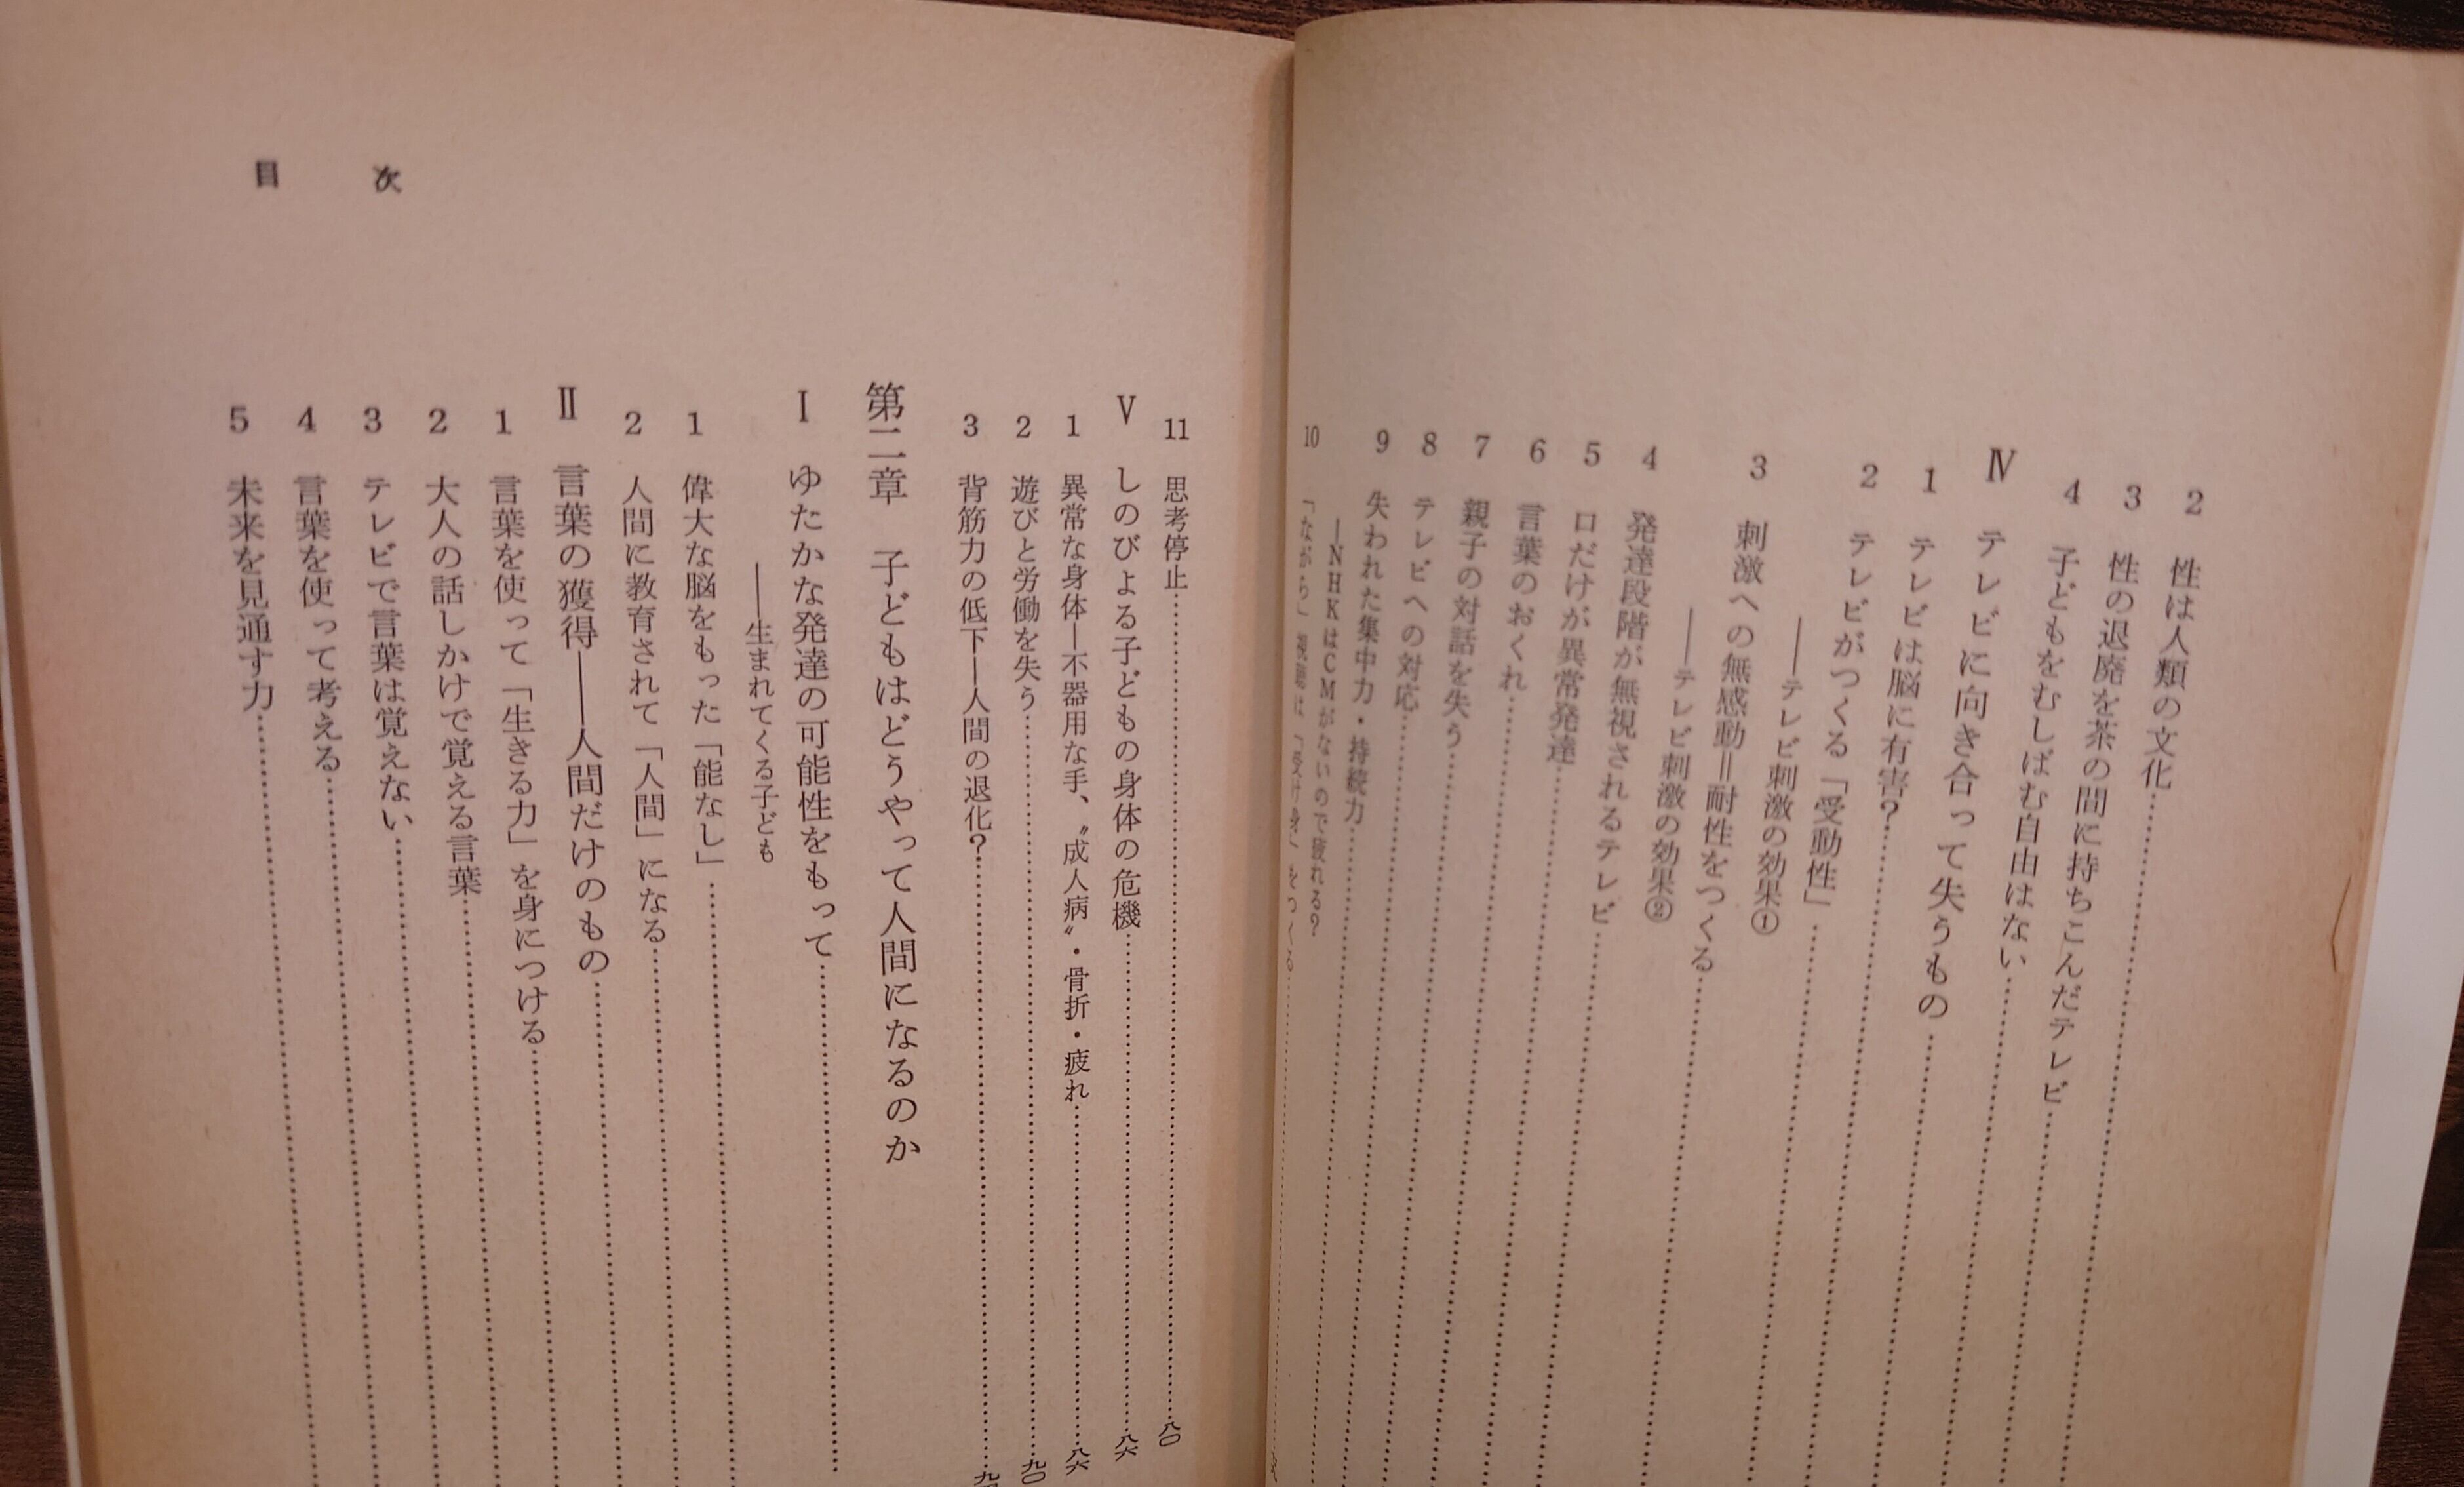 2 性は人類の文化
3 性の退廃を茶の間に持ちこんだテレビ
4 子どもをむしばむ自由はない
Ⅳ テレビに向き合って失うもの
1 テレビは脳に有害?
2 テレビがつくる「受動性」
――テレビ刺激の効果①
3 刺激への無感動＝耐性をつくる
――テレビ刺激の効果②
4 発達段階が無視されるテレビ
5 口だけが異常発達
6 言葉のおくれ
7 親子の対話を失う
8 テレビへの対応
9 失われた集中力・持続力
―NHKはCMがないので疲れる?
10 「ながら」視聴は「受け身」をつくる
11 思考停止 八〇
Ⅴ しのびよる子どもの身体の危機 八六
1 異常な身体―不器用な手、〝成人病〟・骨折・疲れ 八六
2 遊びと労働を失う 九〇
3 背筋力の低下―人間の退化?
第二章 子どもはどうやって人間になるのか
Ⅰ ゆたかな発達の可能性をもって
――生まれてくる子ども
1 偉大な脳をもった「能なし」
2 人間に教育されて「人間」になる
Ⅱ 言葉の獲得――人間だけのもの
1 言葉を使って「生きる力」を身につける
2 大人の話しかけで覚える言葉
3 テレビで言葉は覚えない
4 言葉を使って考える
5 未来を見通す力
目次